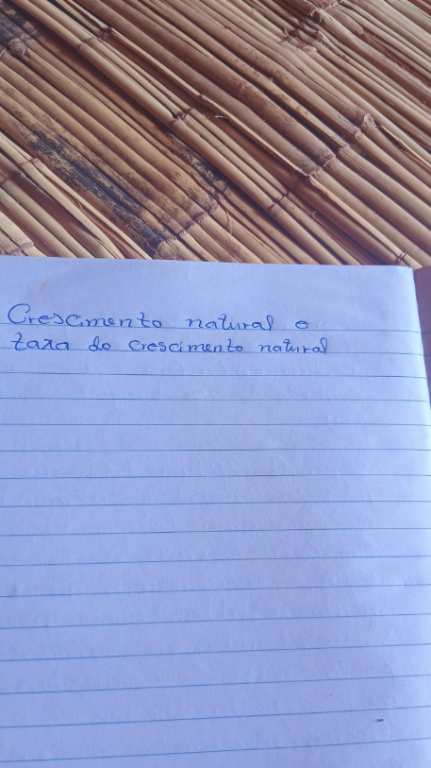 Crescimento natural e
taxa de crescimento natural